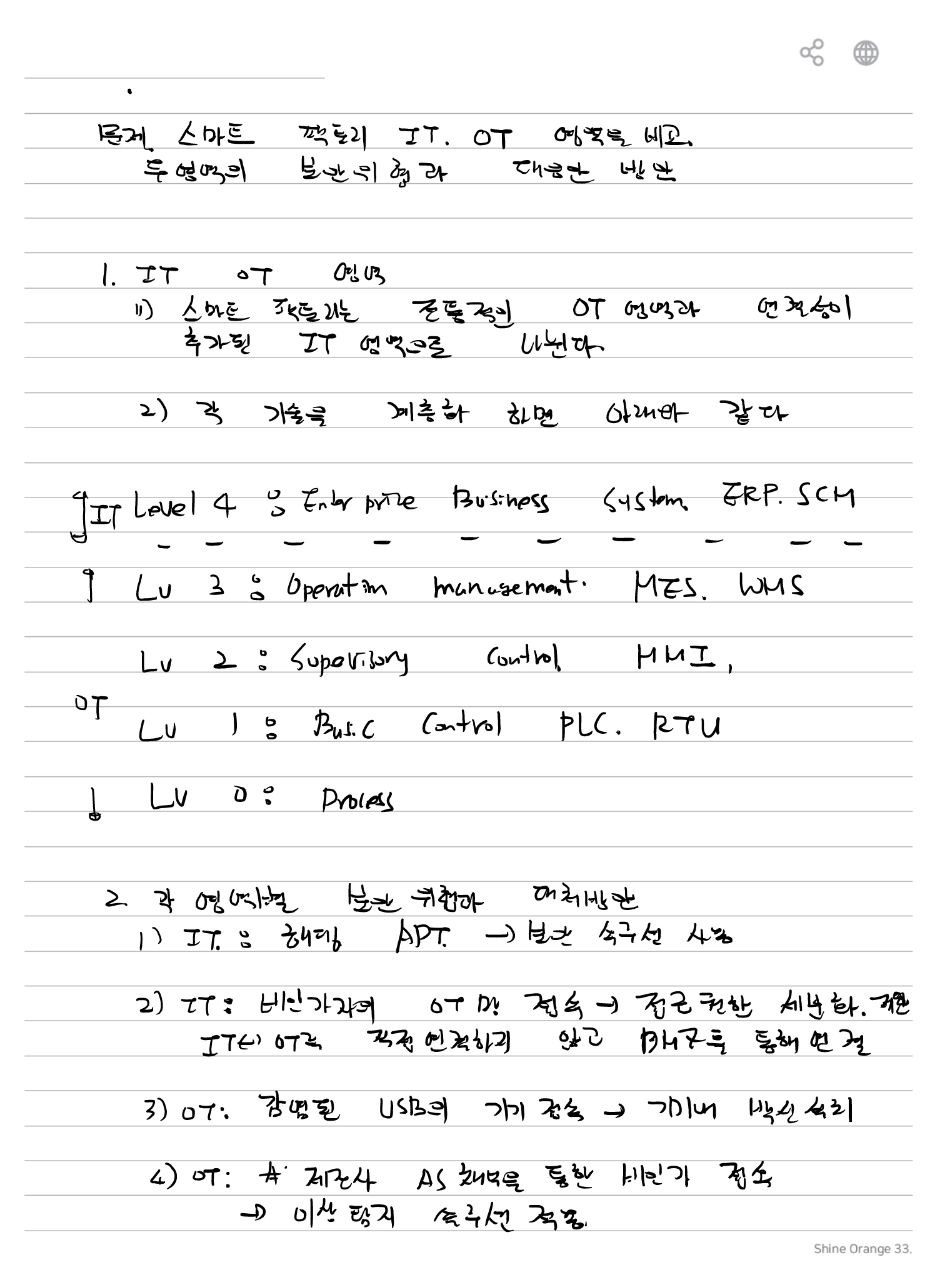 문제. 스마트 팩토리 IT. OT 영역을 비교.
두 영역의 보안위협과 대응방안
1. IT OT 영역
1) 스마트 팩토리는 전통적인 OT 영역과 연결성이
추가된 IT 영역으로 나뉜다.
2) 각 기술을 계층화 하면 아래와 같다
IT Level 4 : Enterprize Business System. ERP. SCM
Lv 3 : Operation management. MES. WMS
Lv 2 : Supervisory Control. HMI,
OT
Lv 1 : Basic Control PLC. RTU
Lv 0 : Process
2. 각 영역별 보안위협과 대처방안
1) IT : 해킹 APT. → 보안 솔루션 사용
2) IT : 비인가자의 OT 망 접속 → 접근권한 세분화.
IT↔OT로 직접연결하지 않고 DMZ를 통해 연결
3) OT: 감염된 USB의 기기 접속 → 기기내 백신 설치
4) OT: 제조사 AS 채널을 통한 비인가 접속
→ 이상탐지 솔루션 적용.
Shine Orange 33.